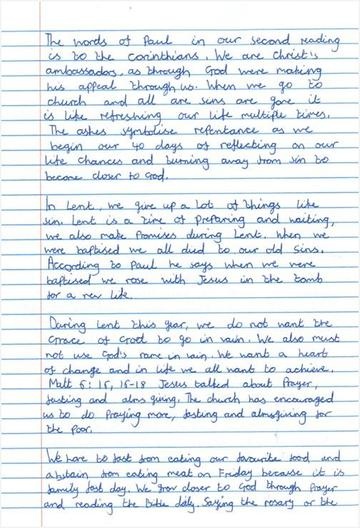 The words of Paul in our second reading
is to the Corinthians. We are Christ's
ambassadors, as through God were making
his appeal through us. When we go to
church and all are sins are gone it
is like refreshing our life multiple times.
The ashes symbolise repentance as we
begin our 40 days of reflecting on our
life chances and turning away from sin to
become closer to God.
In Lent, we give up a lot of things like
sin. Lent is a time of preparing and waiting,
we also make Promises during Lent. When we
were baptised we all died to our old sins.
According to Paul he says when we were
baptised we rose with Jesus in the tomb
for a new life.
During Lent this year, we do not want the
Grace of God to go in vain. We also must
not use God's name in vain. We want a heart
of change and in life we all want to achieve.
Matt 6: 15, 16-18 Jesus talked about Prayer,
fasting and alms giving. The church has encouraged
us to do Praying more, fasting and almsgiving for
the poor.
We have to fast from eating our favourite food and
abstain from eating meat on Friday because it is
family fast day. We grow closer to God through Prayer
and reading the Bible daily. Saying the rosary or the